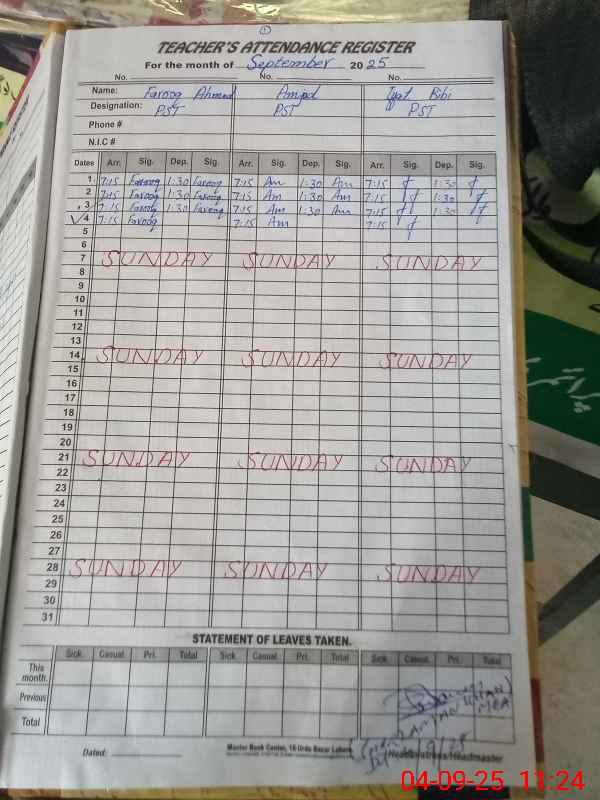 1
TEACHER'S ATTENDANCE REGISTER
For the month of September 2025
No. No. No.
Name: Farooq Ahmad Amjad Bibi
Designation: PST PST PST
Phone #
N.I.C #
Dates Arr. Sig. Dep. Sig. Arr. Sig. Dep. Sig. Arr. Sig. Dep. Sig.
1 7:15 Farooq 1:30 Farooq 7:15 Am 1:30 Am 7:15 1:30
2 7:15 Farooq 1:30 Farooq 7:15 Am 1:30 Am 7:15 1:30
3 7:15 Farooq 1:30 Farooq 7:15 Am 1:30 Am 7:15 1:30
4 7:15 Farooq 7:15 Am 7:15
5
6
7 SUNDAY SUNDAY SUNDAY
8
9
10
11
12
13
14 SUNDAY SUNDAY SUNDAY
15
16
17
18
19
20
21 SUNDAY SUNDAY SUNDAY
22
23
24
25
26
27
28 SUNDAY SUNDAY SUNDAY
29
30
31
STATEMENT OF LEAVES TAKEN.
Sick. Casual. Pri. Total Sick. Casual. Pri. Total Sick. Casual. Pri. Total
This month.
Previous
Total
MEA
Dated:
Master Book Center, 16 Urdu Bazar Lahore
Headmistress/Headmaster
04-09-25 11:24